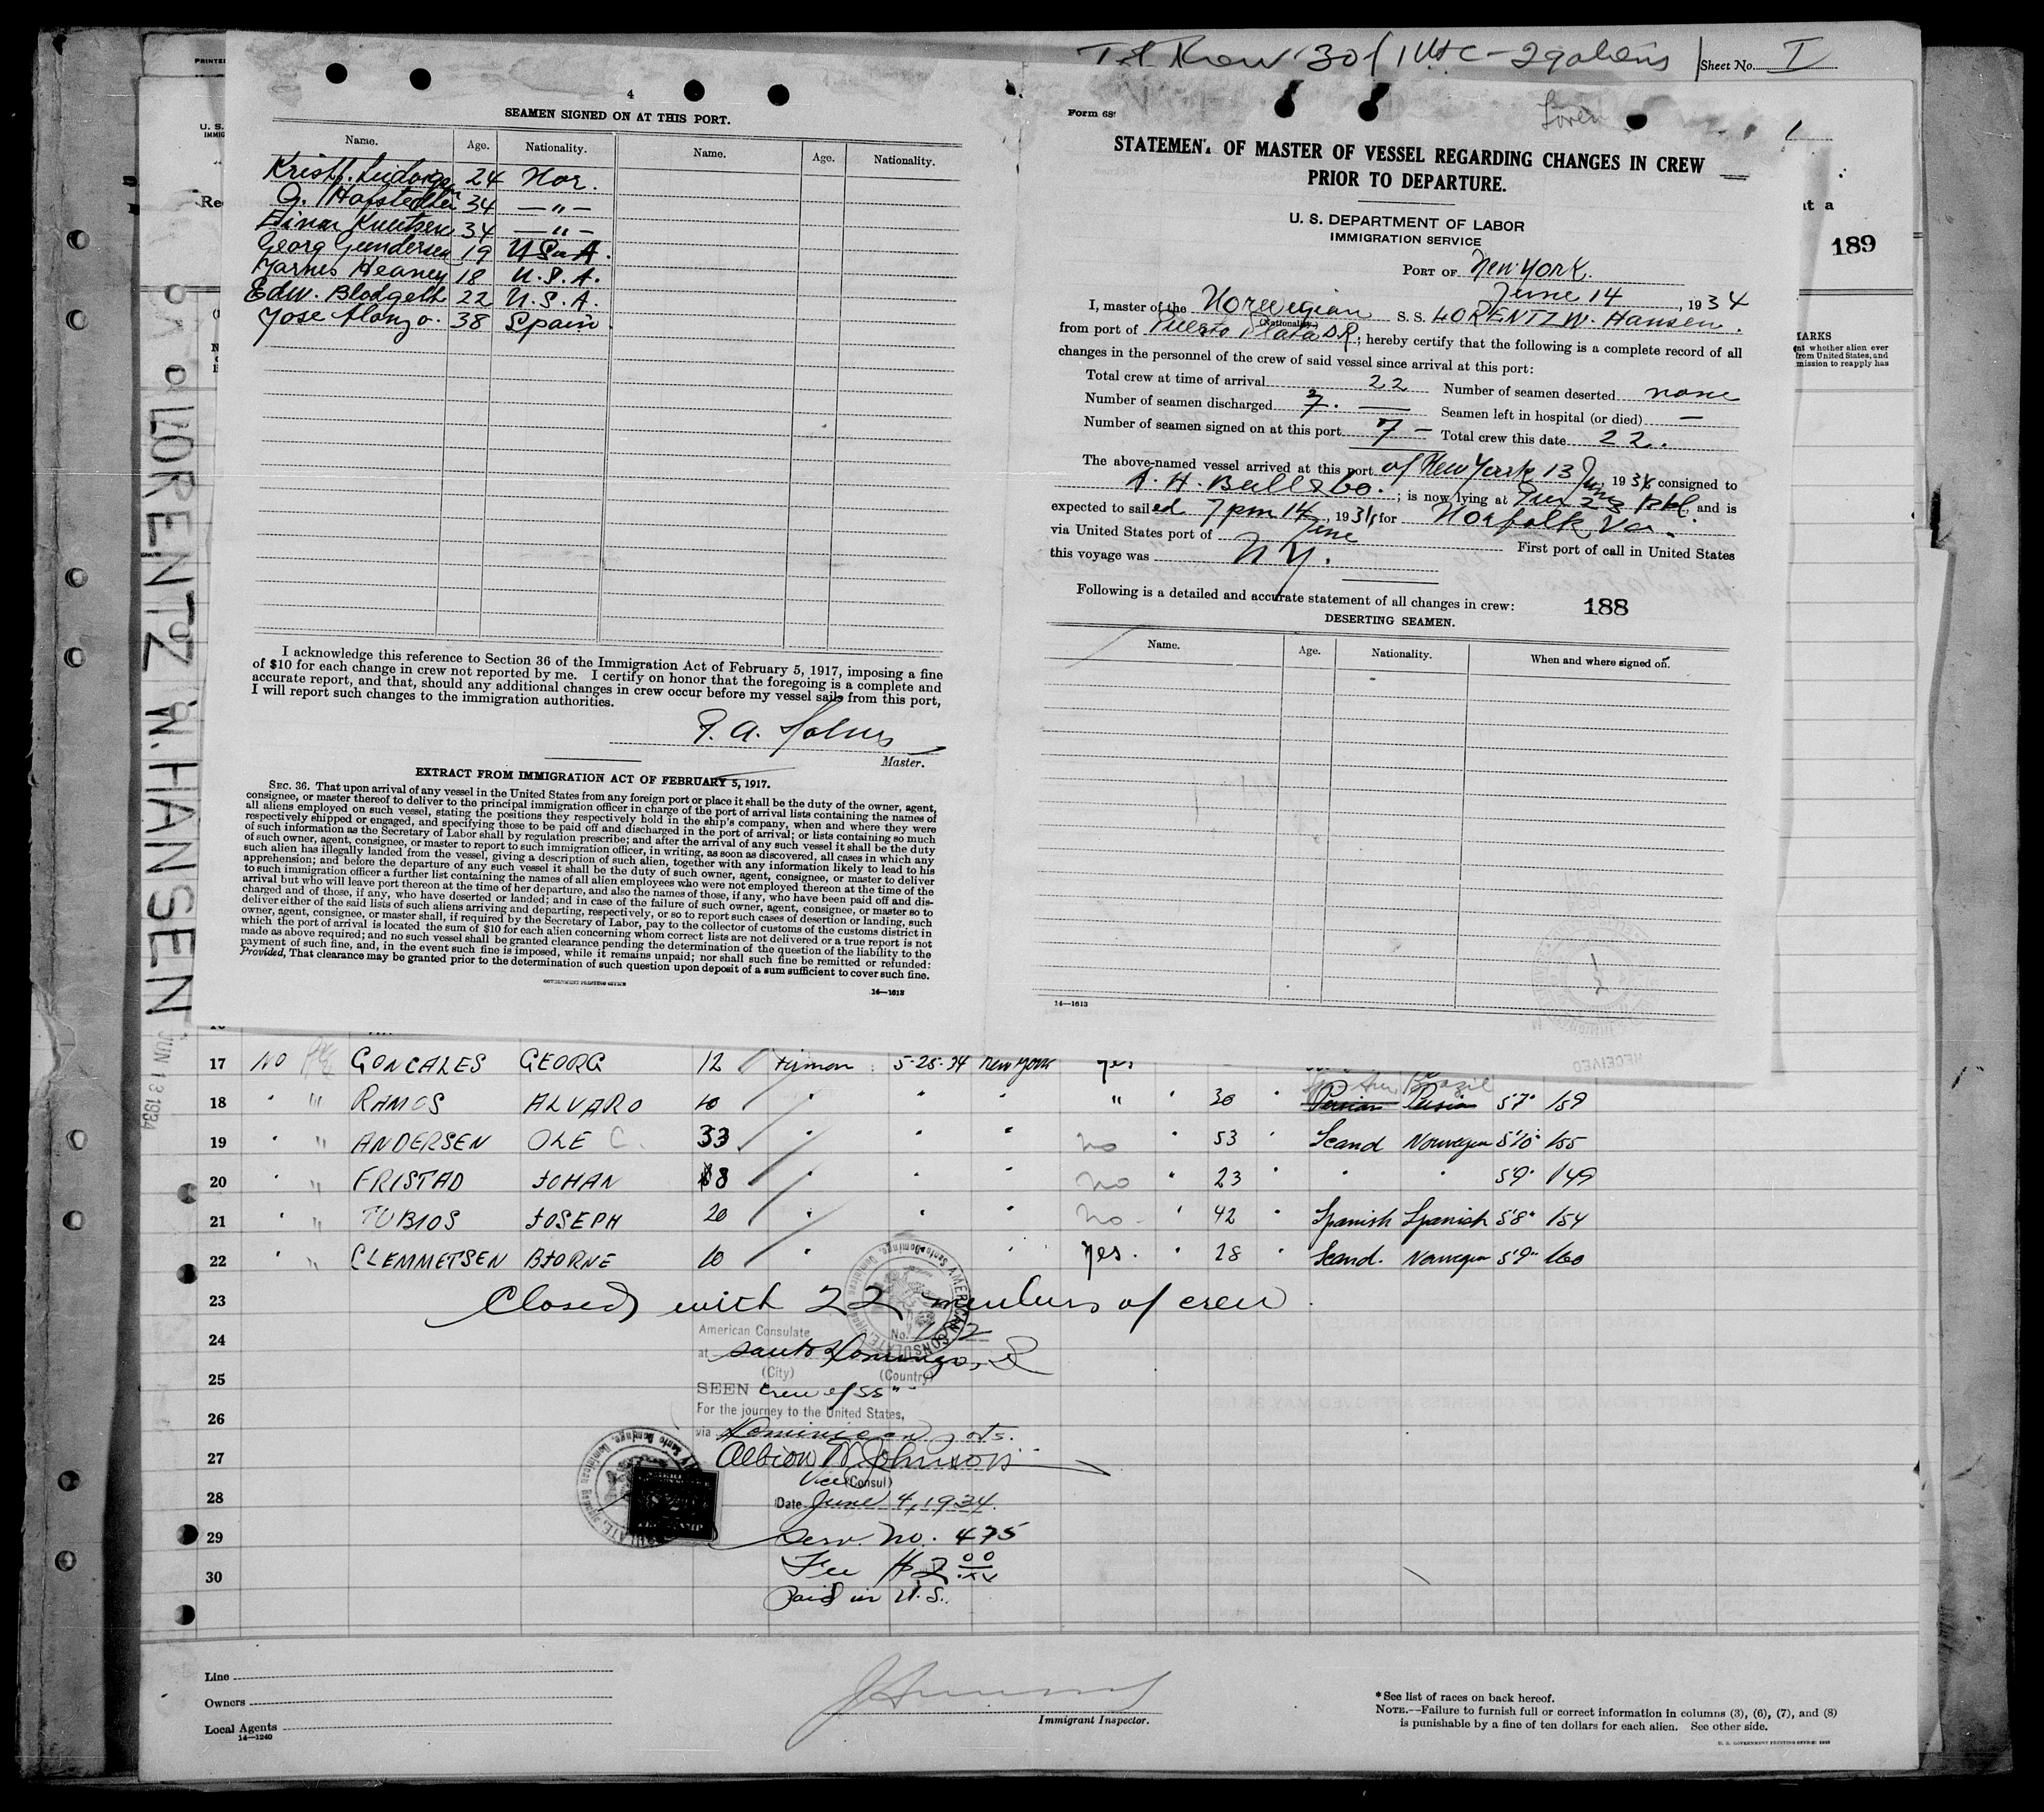 Sheet No. I
4
SEAMEN SIGNED ON AT THIS PORT.
Name. Age. Nationality. Name. Age. Nationality.
24 Nor.
34 —"—
Einar Knutsen 34 —"—
Georg Gundersen 19 U.S.A.
Heaney 18 U.S.A.
Edw. Blodgett 22 U.S.A.
Jose Alonzo. 38 Spain
I acknowledge this reference to Section 36 of the Immigration Act of February 5, 1917, imposing a fine
of $10 for each change in crew not reported by me. I certify on honor that the foregoing is a complete and
accurate report, and that, should any additional changes in crew occur before my vessel sails from this port,
I will report such changes to the immigration authorities.
Master.
EXTRACT FROM IMMIGRATION ACT OF FEBRUARY 5, 1917.
SEC. 36. That upon arrival of any vessel in the United States from any foreign port or place it shall be the duty of the owner, agent,
consignee, or master thereof to deliver to the principal immigration officer in charge of the port of arrival lists containing the names of
all aliens employed on such vessel, stating the positions they respectively hold in the ship's company, when and where they were
respectively shipped or engaged, and specifying those to be paid off and discharged in the port of arrival; or lists containing so much
of such information as the Secretary of Labor shall by regulation prescribe; and after the arrival of any such vessel it shall be the duty
of such owner, agent, consignee, or master to report to such immigration officer, in writing, as soon as discovered, all cases in which any
such alien has illegally landed from the vessel, giving a description of such alien, together with any information likely to lead to his
apprehension; and before the departure of any such vessel it shall be the duty of such owner, agent, consignee, or master to deliver
to such immigration officer a further list containing the names of all alien employees who were not employed thereon at the time of the
arrival but who will leave port thereon at the time of her departure, and also the names of those, if any, who have been paid off and dis-
charged and of those, if any, who have deserted or landed; and in case of the failure of such owner, agent, consignee, or master so to
deliver either of the said lists of such aliens arriving and departing, respectively, or so to report such cases of desertion or landing, such
owner, agent, consignee, or master shall, if required by the Secretary of Labor, pay to the collector of customs of the customs district in
which the port of arrival is located the sum of $10 for each alien concerning whom correct lists are not delivered or a true report is not
made as above required; and no such vessel shall be granted clearance pending the determination of the question of the liability to the
payment of such fine, and, in the event such fine is imposed, while it remains unpaid; nor shall such fine be remitted or refunded:
Provided, That clearance may be granted prior to the determination of such question upon deposit of a sum sufficient to cover such fine.
GOVERNMENT PRINTING OFFICE
14—1613
Form 68
STATEMENT OF MASTER OF VESSEL REGARDING CHANGES IN CREW
PRIOR TO DEPARTURE.
U. S. DEPARTMENT OF LABOR
IMMIGRATION SERVICE
PORT OF New York.
June 14, 1934
I, master of the Norwegian S. S. LORENTZ W. Hansen.
(Nationality)
from port of Puerto Plata DR; hereby certify that the following is a complete record of all
changes in the personnel of the crew of said vessel since arrival at this port:
Total crew at time of arrival 22 Number of seamen deserted none
Number of seamen discharged 7. — Seamen left in hospital (or died) —
Number of seamen signed on at this port 7 — Total crew this date 22.
The above-named vessel arrived at this port of New York 13 June, 1934 consigned to
A. H. Bull & Co.; is now lying at Pier 23 Bkl, and is
expected to sailed 7 pm 14 June, 1934 for Norfolk Va.
via United States port of First port of call in United States
this voyage was N Y.
Following is a detailed and accurate statement of all changes in crew: 188
DESERTING SEAMEN.
Name. Age. Nationality. When and where signed on.
14—1613
189
MARKS
LORENTZ W. HANSEN
JUN 13 1934
17 NO GONCALES GEORG 12 Fireman 5-25-34 New York yes
18 " " RAMOS ALVARO 10 " " " " " 30 " Persian Persia 5'7" 159
Brazil
19 " " ANDERSEN OLE C. 33 " " " no " 53 " Scand Norwegian 5'10" 155
20 " " FRISTAD JOHAN 8 " " " no " 23 " " " 5'9" 149
21 " " TUBIOS JOSEPH 20 " " " no " 42 " Spanish Spanish 5'8" 154
22 " " CLEMMETSEN BJORNE 10 " " " yes. " 28 " Scand. Norwegian 5'9" 160
23 Closed with 22 members of crew.
24 American Consulate No.
at Santo Domingo, D R
25 (City) (Country)
SEEN Crew of SS " "
26 For the journey to the United States,
via Dominican ports.
27 Albion W. Johnson
Vice (Consul)
28 Date June 4, 1934.
29 Serv. No. 475
30 Fee $2.00
Paid in U.S.
AMERICAN CONSULATE, Santo Domingo, Dominican Republic
Line
Owners
Local Agents
14—1240
Immigrant Inspector.
*See list of races on back hereof.
NOTE.—Failure to furnish full or correct information in columns (3), (6), (7), and (8)
is punishable by a fine of ten dollars for each alien. See other side.
U. S. GOVERNMENT PRINTING OFFICE